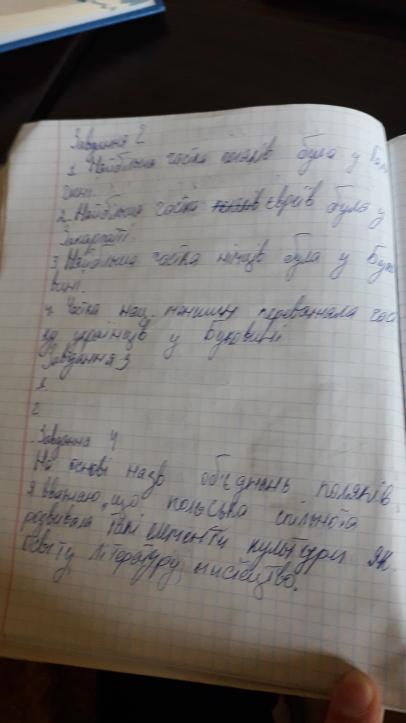 Завдання 2
1. Найбільша частка поляків була у Гали
чині.
2. Найбільша частка євреїв була у
Закарпатті.
3. Найбільша частка німців була у Буко
вині.
4. Частка нац. меншин переважала част
ку українців у Буковині
Завдання 3
1.
2.
Завдання 4
На основі назв об'єднань поляків
я вважаю, що польська спільнота
розвивала такі елементи культури як
освіту, літературу, мистецтво.